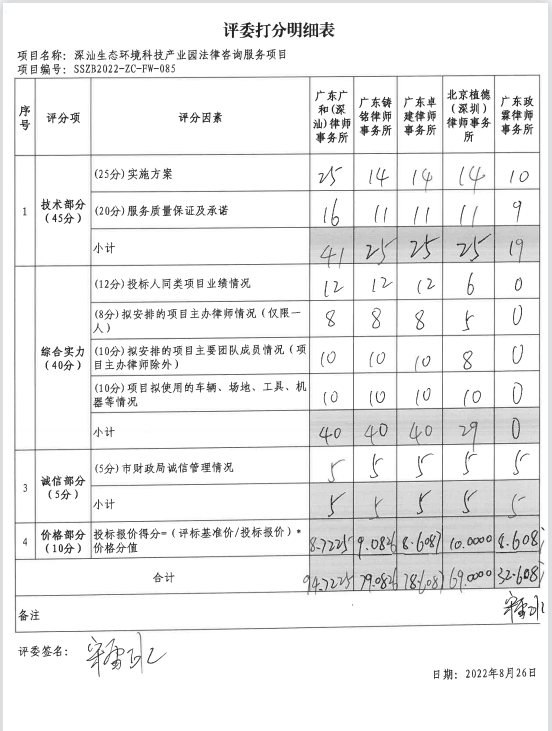 评委打分明细表
项目名称：深汕生态环境科技产业园法律咨询服务项目
项目编号：SSZB2022-ZC-FW-085
序号 评分项 评分因素 广东广和(深汕)律师事务所 广东铸铭律师事务所 广东卓建律师事务所 北京植德（深圳）律师事务所 广东政霖律师事务所
1 技术部分（45分） (25分)实施方案 25 14 14 14 10
(20分)服务质量保证及承诺 16 11 11 11 9
小计 41 25 25 25 19
综合实力（40分） (12分)投标人同类项目业绩情况 12 12 12 6 0
(8分)拟安排的项目主办律师情况（仅限一人） 8 8 8 5 0
(10分)拟安排的项目主要团队成员情况（项目主办律师除外） 10 10 10 8 0
(10分)项目拟使用的车辆、场地、工具、机器等情况 10 10 10 10 0
小计 40 40 40 29 0
3 诚信部分（5分） (5分)市财政局诚信管理情况 5 5 5 5 5
小计 5 5 5 5 5
4 价格部分（10分） 投标报价得分=（评标基准价/投标报价）*价格分值 8.7225 9.0826 8.6087 10.0000 8.608
合计 94.7225 79.0826 78.6087 69.0000 32.608
备注
评委签名：
日期：2022年8月26日